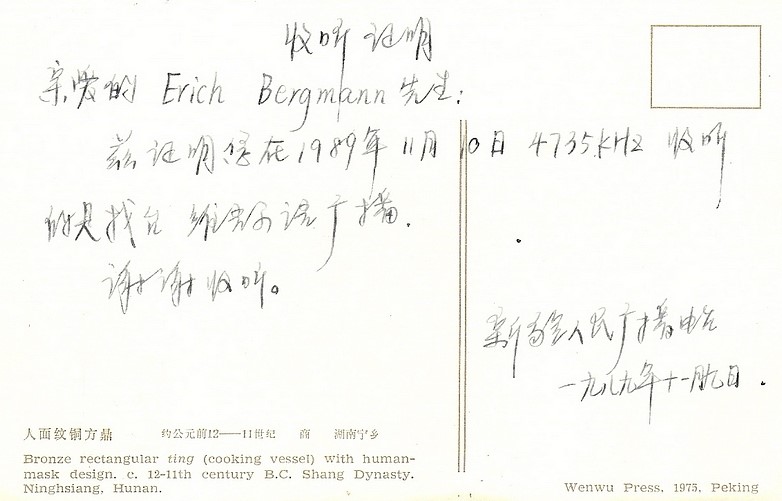 收听证明
亲爱的 Erich Bergmann 先生:
兹证明您在1989年11月10日 4735 kHz 收听
的是我台 维吾尔语广播.
谢谢收听。
新疆人民广播电台
一九八九年十一月 日.
人面纹铜方鼎 约公元前12——11世纪 商 湖南宁乡
Bronze rectangular ting (cooking vessel) with human-
mask design. c. 12-11th century B.C. Shang Dynasty.
Ninghsiang, Hunan.
Wenwu Press, 1975, Peking